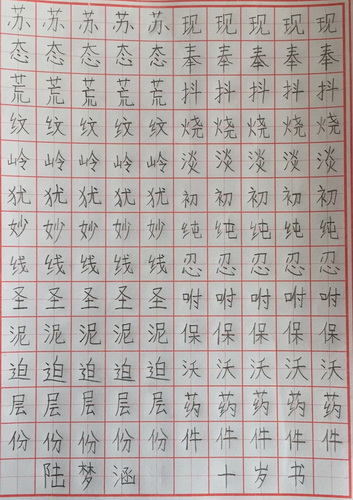 苏苏苏苏苏现现现现现
态态态态态奉奉奉奉奉
荒荒荒荒荒抖抖抖抖抖
纹纹纹纹纹烧烧烧烧烧
岭岭岭岭岭淡淡淡淡淡
犹犹犹犹犹初初初初初
妙妙妙妙妙纯纯纯纯纯
线线线线线忍忍忍忍忍
圣圣圣圣圣咐咐咐咐咐
泥泥泥泥泥保保保保保
迫迫迫迫迫沃沃沃沃沃
层层层层层药药药药药
份份份份份件件件件件
陆梦涵 十岁书